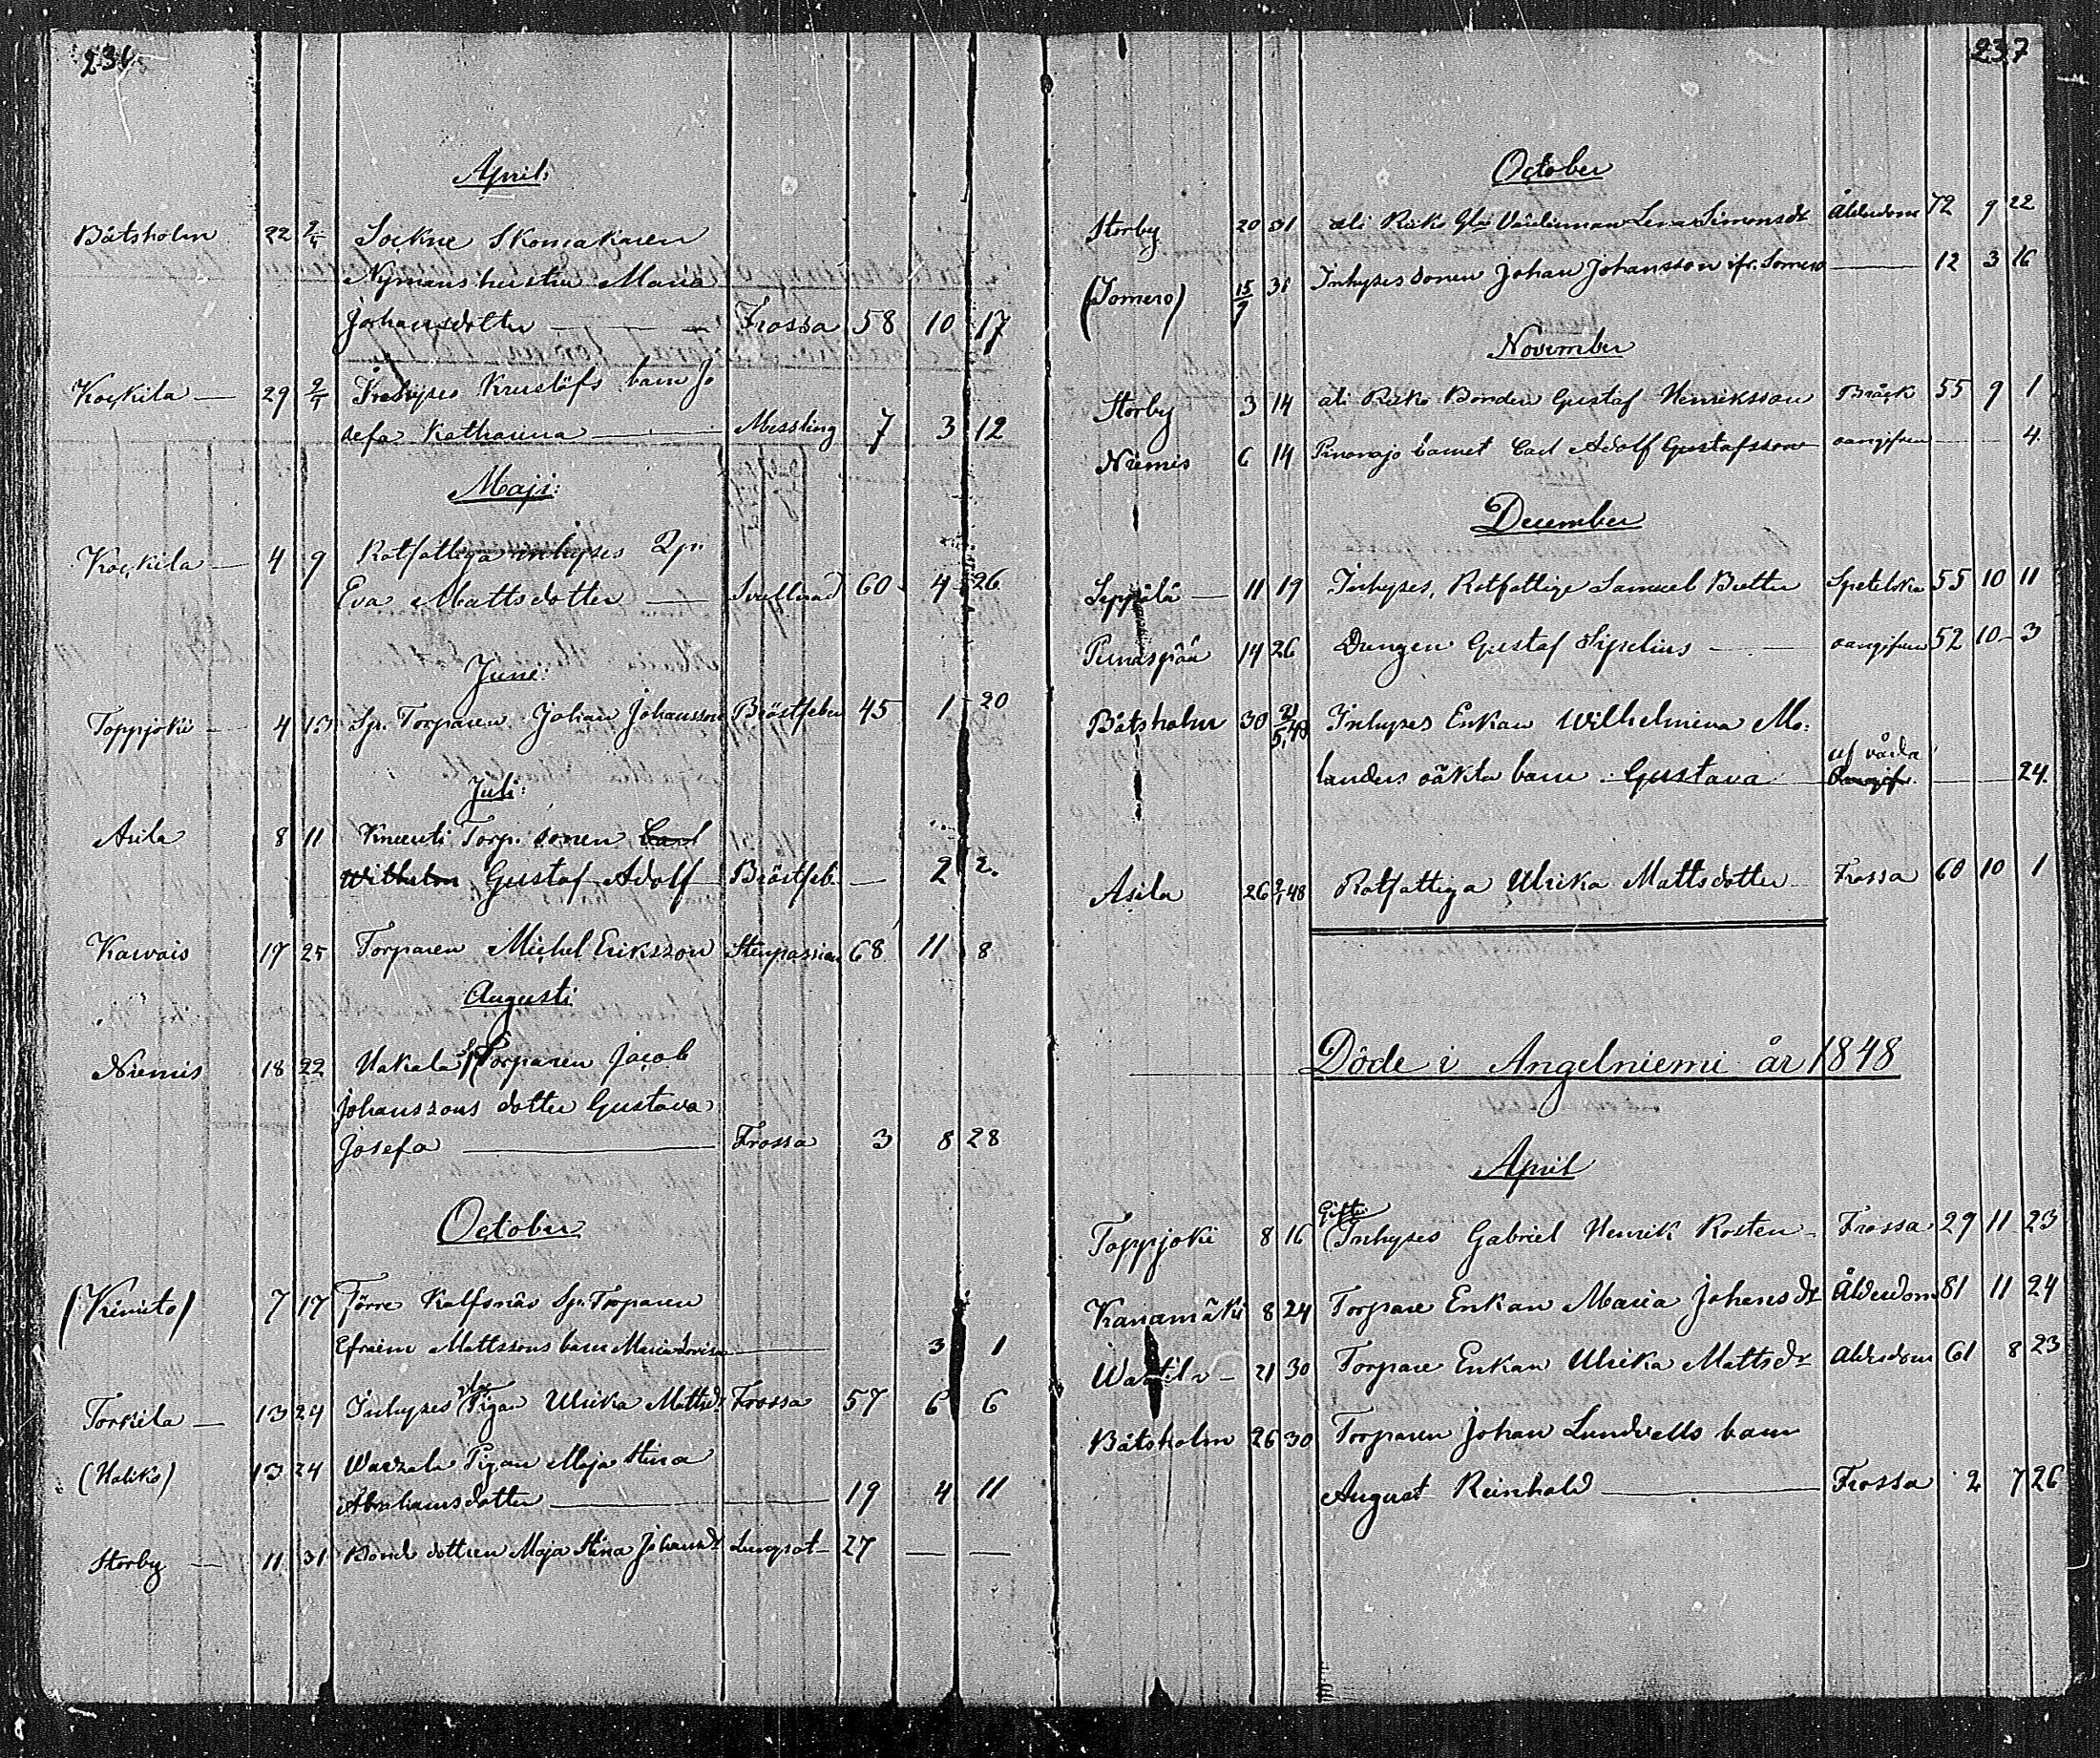 236
April:
Båtsholm 22 2/5 Sockne Skomakaren
Nymans hustru Maria
Johansdotter — Frossa 58 10 17
Kockila — 29 2/5 Inhyses Kruslöfs barn Jo
sefa Katharina — Messling 7 3 12
Maji:
Kockila — 4 9 Rotfattiga inhyses Qp:
Eva Mattsdotter — 60 4 26
Juni:
Toppjoki — 4 13 Sp. Torparen Johan Johansson Bröstfeber 45 1 20
Juli:
Asila 8 11 Torp. sonen Carl
Wilhelm Gustaf Adolf Bröstfeb. — 2 2.
Karvais 17 25 Torparen Michel Eriksson Stenpassion 68 11 8
Augusti
Niemis 18 22 Hakala Sp Torparen Jacob
Johanssons dotter Gustava
Josefa — Frossa 3 8 28
October
(Kimito) 7 17 Förre Kalfsnäs Sp. Torparen
Efraim Mattssons barn Maria Lovisa — 3 1
Torkila — 13 24 Inhyses Pigan Ulrika Mattsdr Frossa 57 6 6
(Haliko) 13 24 Pigan Maja Stina
Abrahamsdotter — 19 4 11
Storby — 11 31 Bonde dottren Maja Stina Johansdr Lungsot — 27 — —
237
October
Storby 20 31 ali Rieko Lena Simonsdr Ålderdom 72 9 22
(Somero) 15/9 31 Inhyses sonen Johan Johansson ifr. Somero — 12 3 16
November
Storby 3 14 ali Rieko Bonden Gustaf Henriksson Bråck 55 9 1
Niemis 6 14 barnet Carl Adolf Gustafsson oangifven — — 4.
December
Seppälä — 11 19 Inhyses, Rotfattige Samuel Spetelska 55 10 11
Punaspää 14 26 Drengen Gustaf Sipelius — oangifven 52 10 — 3
Båtsholm 30 Inhyses Enkan Wilhelmina Mo:
landers oäkta barn Gustava af våda Oangif. — 24.
Asila 26 48 Rotfattiga Ulrika Mattsdotter Frossa 60 10 1
Döde i Angelniemi år 1848
April
Toppjoki 8 16 Gifte Inhyses Gabriel Henrik Rosten — Frossa 29 11 23
Kanamäki 8 24 Torpare Enkan Maria Johansdr Ålderdom 81 11 24
21 30 Torpare Enkan Ulrika Mattsdr Ålderdom 61 8 23
Båtsholm 26 30 Torparen Johan Lundvells barn
August Reinhold — Frossa 2 7 26